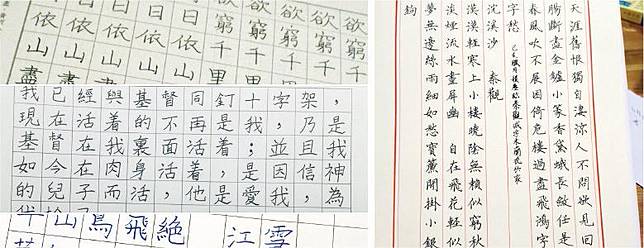 欲窮千里
欲窮千里
欲窮千里
欲窮千
欲窮
日依山盡
日依山
日依山
日依山
我已經與基督同釘十字架，
現在活着的不再是我，乃是
基督在我裏面活着；並且我
如今在肉身活着，是因信神
的兒子而活，他是愛我，為
山鳥飛絕 江雪
天涯舊恨獨自淒涼人不問欲見回
腸斷盡金鑪小篆香黛蛾長斂任是
春風吹不展困倚危樓過盡飛鴻
字愁
浣溪沙 秦觀
漠漠輕寒上小樓曉陰無賴似窮秋
淡煙流水畫屏幽 自在飛花輕似
夢無邊絲雨細如愁寶簾閒掛小銀
鉤